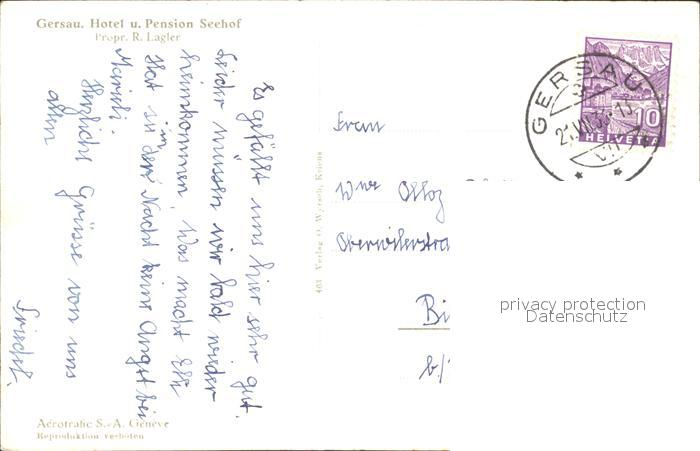 Gersau. Hotel u. Pension Seehof
Propr. R. Lagler
Es gefällt uns hier sehr gut.
Leider müssen wir bald wieder
heimkommen. Was macht Elsi
Hat sie in der Nacht keine Angst bei
Marieli.
Herzliche Grüsse von uns
allen
463 Verlag O. Wyrsch, Kriens
Frau
Wwe
Oberwilerstra
Bi
b/
GERSAU
10
HELVETIA
privacy protection
Datenschutz
Aérotrafic S.-A. Genève
Reproduktion verboten